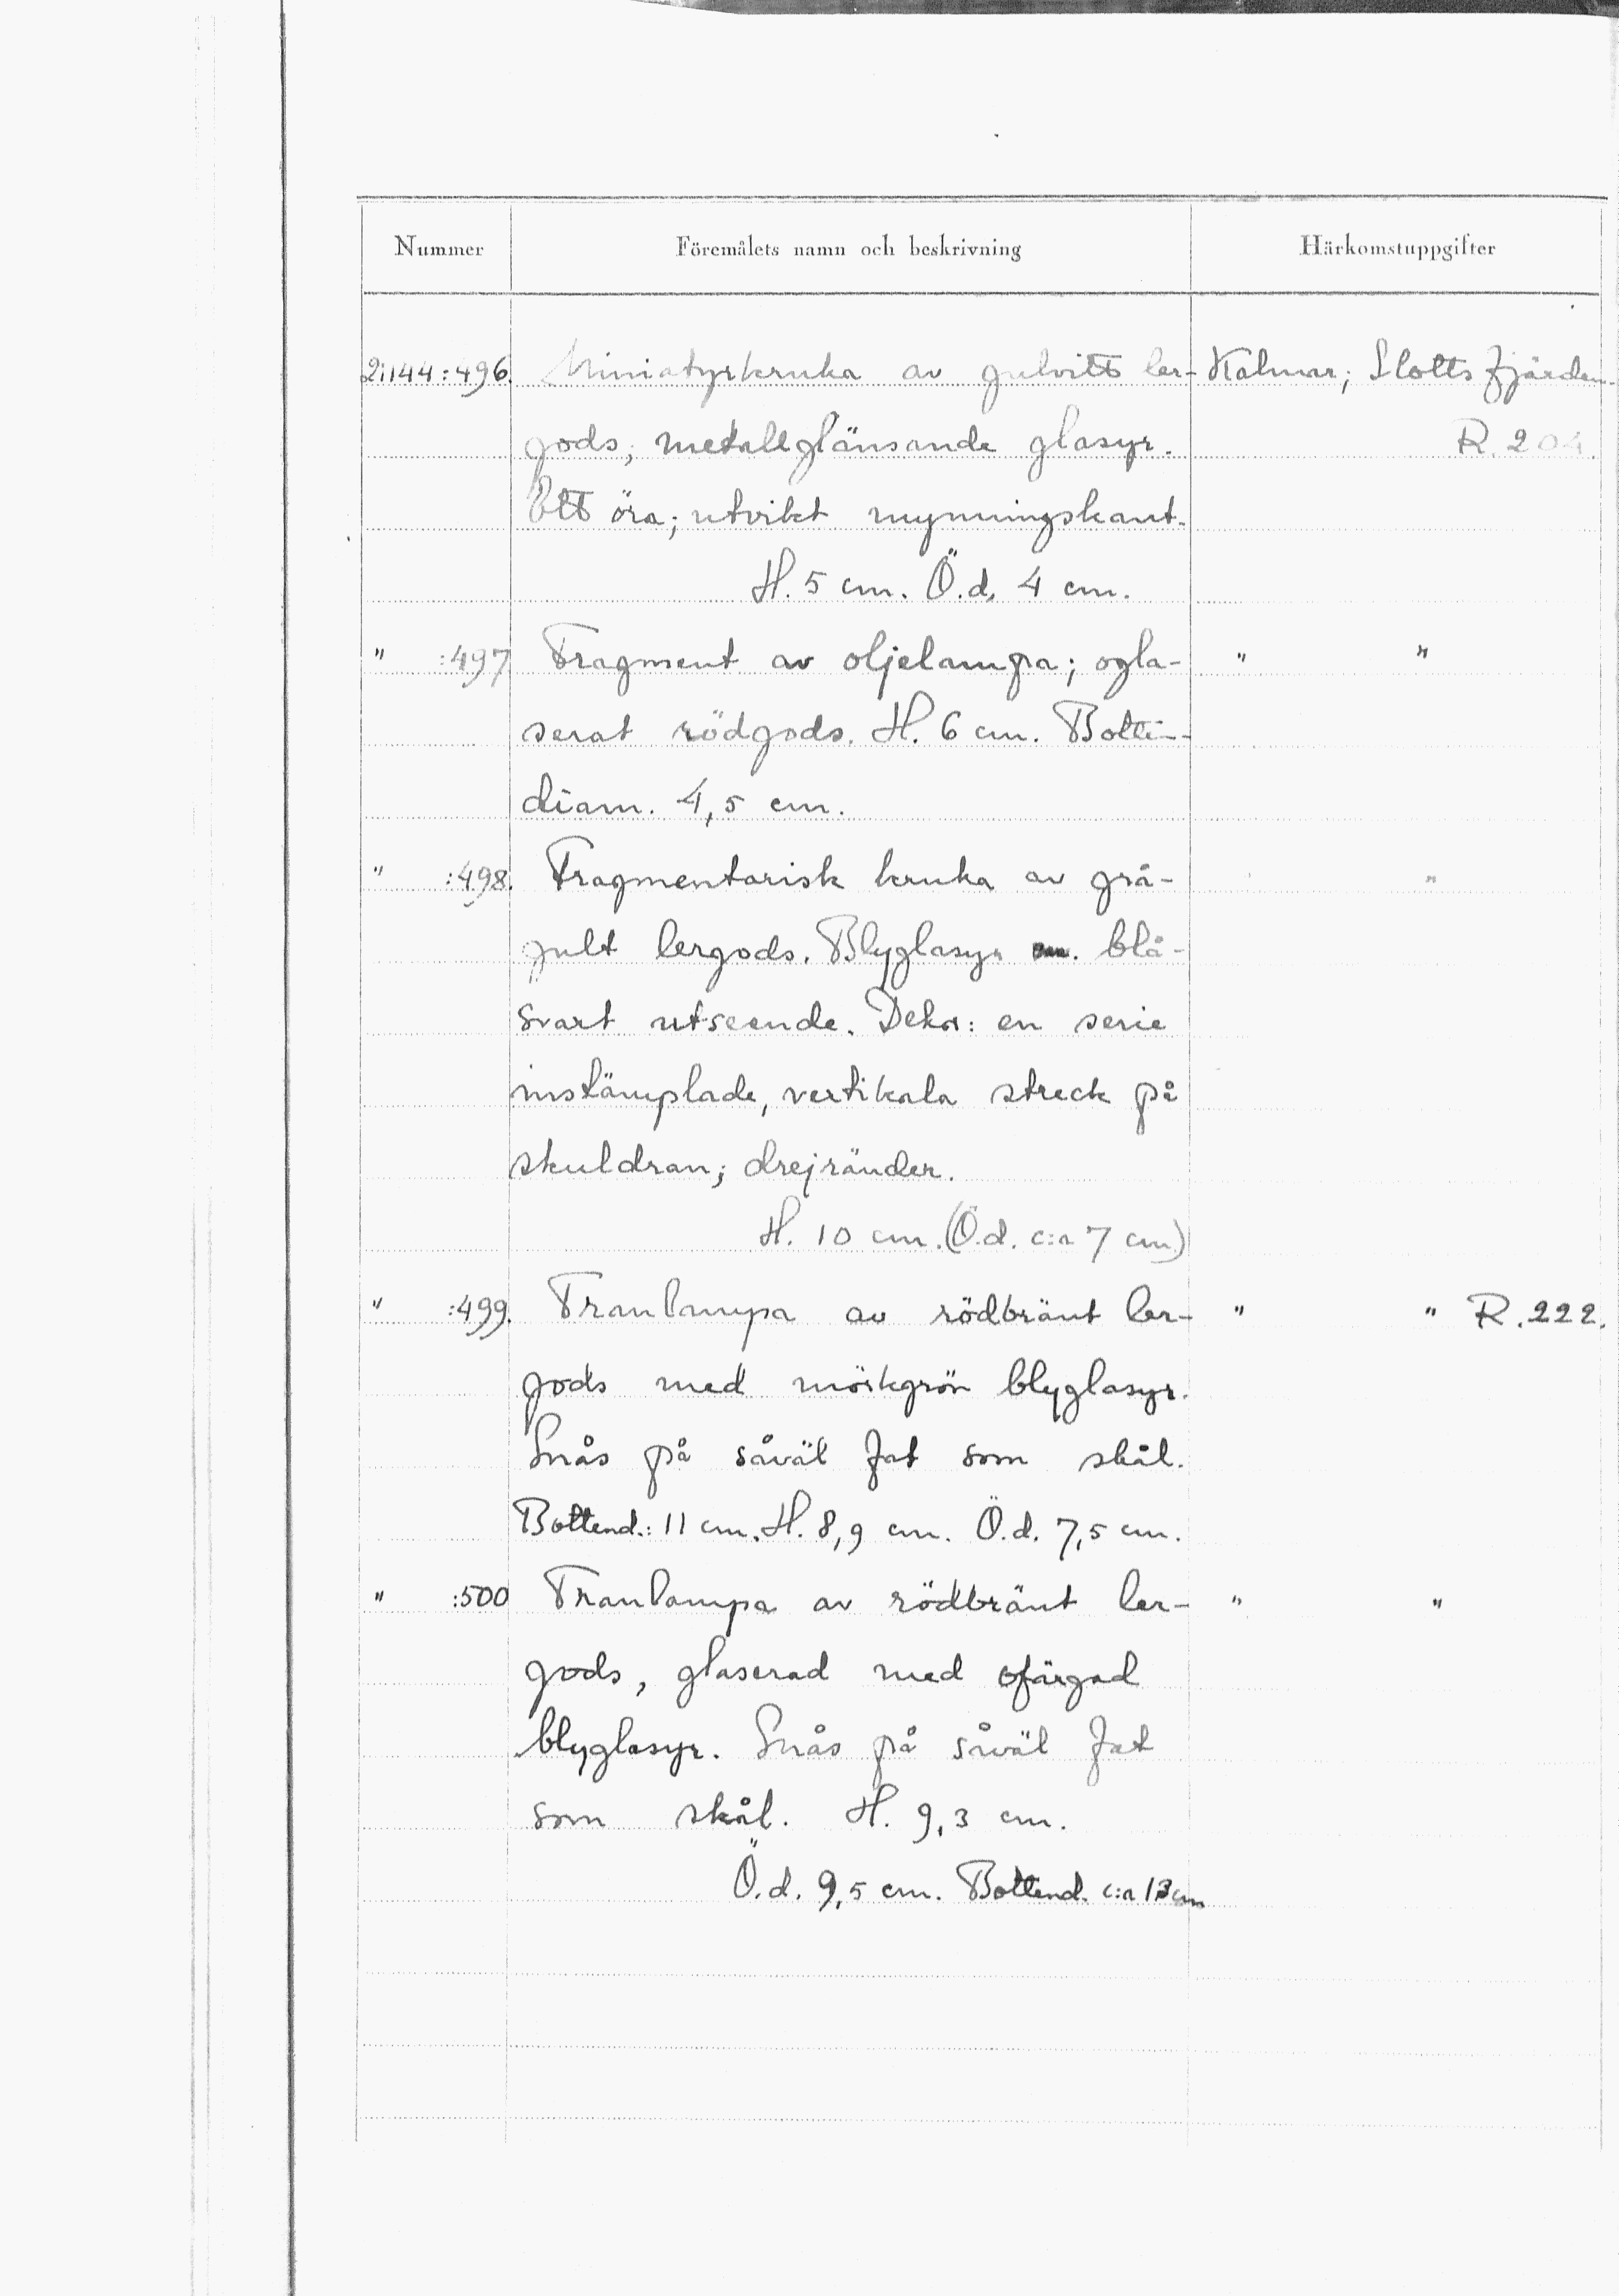 Nummer Föremålets namn och beskrivning Härkomstuppgifter
21144:496. Miniatyrkruka av gulvitt ler- Kalmar; Slottsfjärden.
gods; metallglänsande glasyr. R. 204.
Ett öra; utvikt mynningskant.
H. 5 cm. Ö.d. 4 cm.
" :497 Fragment av oljelampa; ogla- " "
serat rödgods. H. 6 cm. Botten-
diam. 4,5 cm.
" :498. Fragmentarisk kruka av grå- "
gult lergods. Blyglasyr m. blå-
svart utseende. Dekor: en serie
instämplade, vertikala streck på
skuldran; drejränder.
H. 10 cm. (Ö.d. c:a 7 cm)
" :499. Tranlampa av rödbränt ler- " " R.222.
gods med mörkgrön blyglasyr.
Snås på såväl fat som skål.
Bottend.: 11 cm. H. 8,9 cm. Ö.d. 7,5 cm.
" :500 Tranlampa av rödbränt ler- " "
gods, glaserad med ofärgad
blyglasyr. Snås på såväl fat
som skål. H. 9,3 cm.
Ö.d. 9,5 cm. Bottend. c:a 13 cm